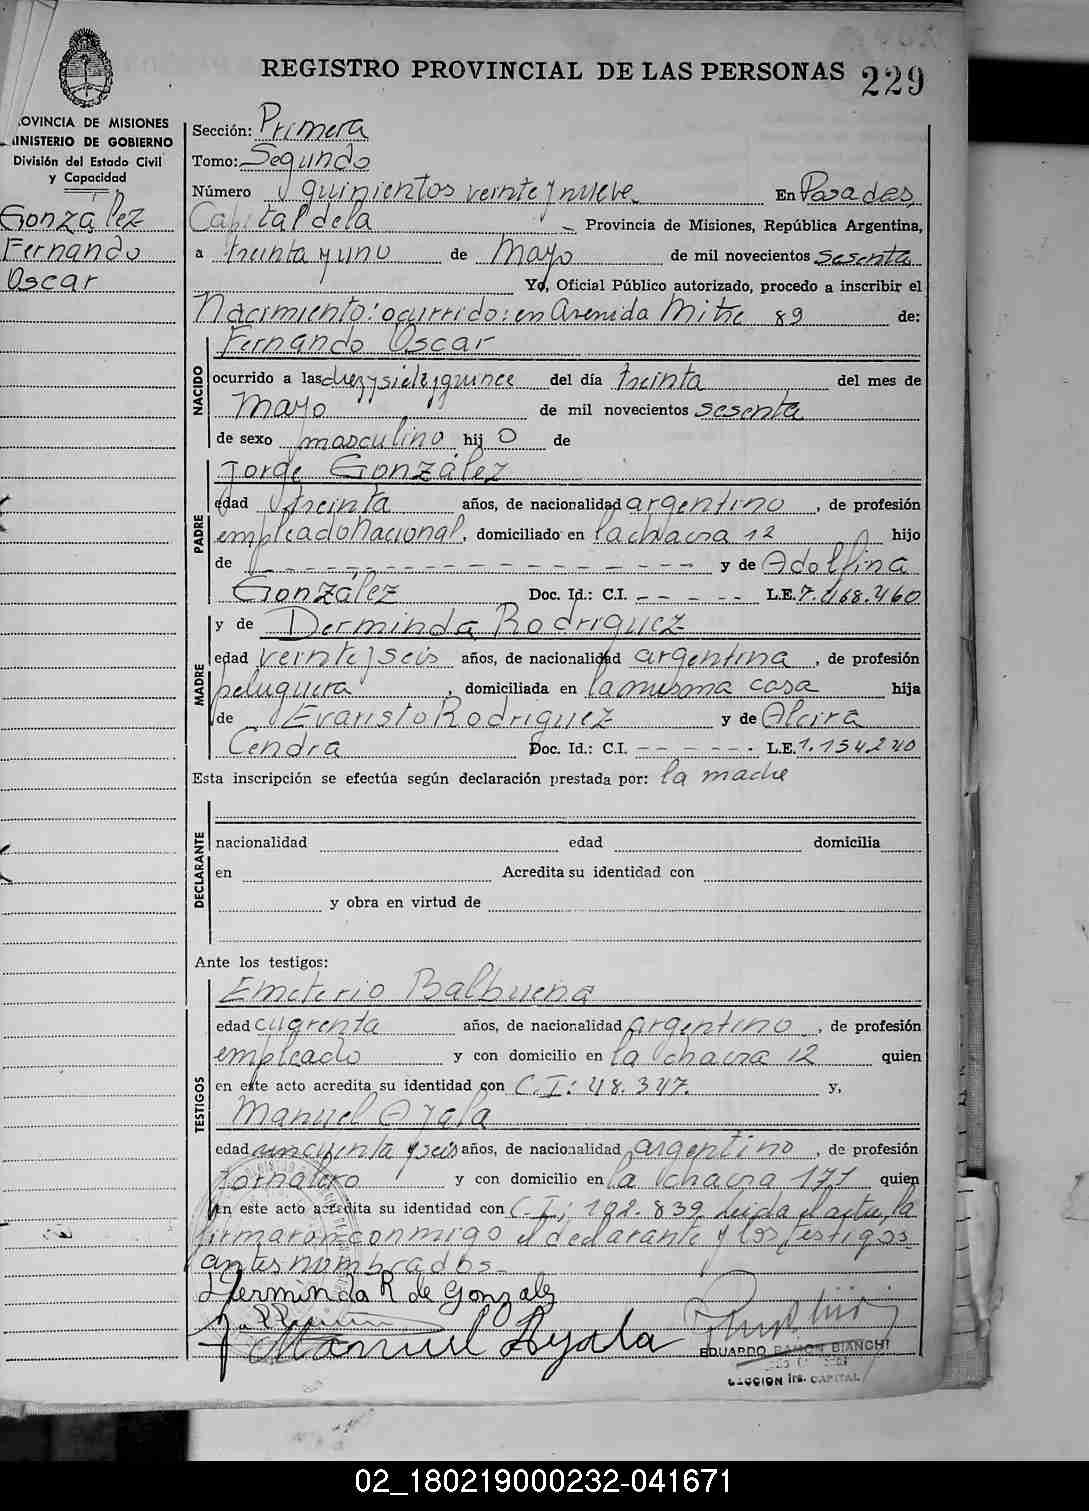 REGISTRO PROVINCIAL DE LAS PERSONAS 229
OVINCIA DE MISIONES
INISTERIO DE GOBIERNO
División del Estado Civil
y Capacidad
González
Fernando
Oscar
Sección: Primera
Tomo: Segundo
Número quinientos veinte y nueve En Posadas,
Capital de la Provincia de Misiones, República Argentina,
a treinta y uno de Mayo de mil novecientos sesenta
Yo, Oficial Público autorizado, procedo a inscribir el
Nacimiento: ocurrido: en Avenida Mitre 89 de:
NACIDO
Fernando Oscar
ocurrido a las diez y siete y quince del día treinta del mes de
Mayo de mil novecientos sesenta
de sexo masculino hij o de
PADRE
Jorge González
edad treinta años, de nacionalidad argentino, de profesión
empleado Nacional, domiciliado en la chacra 12 hijo
de - - - - - - - - - - - - - - - - y de Adolfina
González Doc. Id.: C.I. - - - - - L.E. 7.468.460
MADRE
y de Derminda Rodriguez
edad veinte y seis años, de nacionalidad argentina, de profesión
peluquera, domiciliada en la misma casa hija
de Evaristo Rodriguez y de Alcira
Cendra Doc. Id.: C.I. - - - - - L.E. 1.154240
Esta inscripción se efectúa según declaración prestada por: la madre
DECLARANTE
nacionalidad edad domicilia
en Acredita su identidad con
y obra en virtud de
Ante los testigos:
TESTIGOS
Emeterio Balbuena
edad cuarenta años, de nacionalidad argentino, de profesión
empleado y con domicilio en la chacra 12 quien
en este acto acredita su identidad con C.I: 48.347. y,
Manuel Ayala
edad cincuenta y seis años, de nacionalidad argentino, de profesión
jornalero y con domicilio en la chacra 177 quien
en este acto acredita su identidad con C.I; 192.839. Leida el acta, la
firmaron conmigo el declarante y los testigos
antes nombrados.-
Herminda R de Gonzalez
Manuel Ayala
EDUARDO RAMON BIANCHI
SECCION 1ra. CAPITAL
02_180219000232-041671